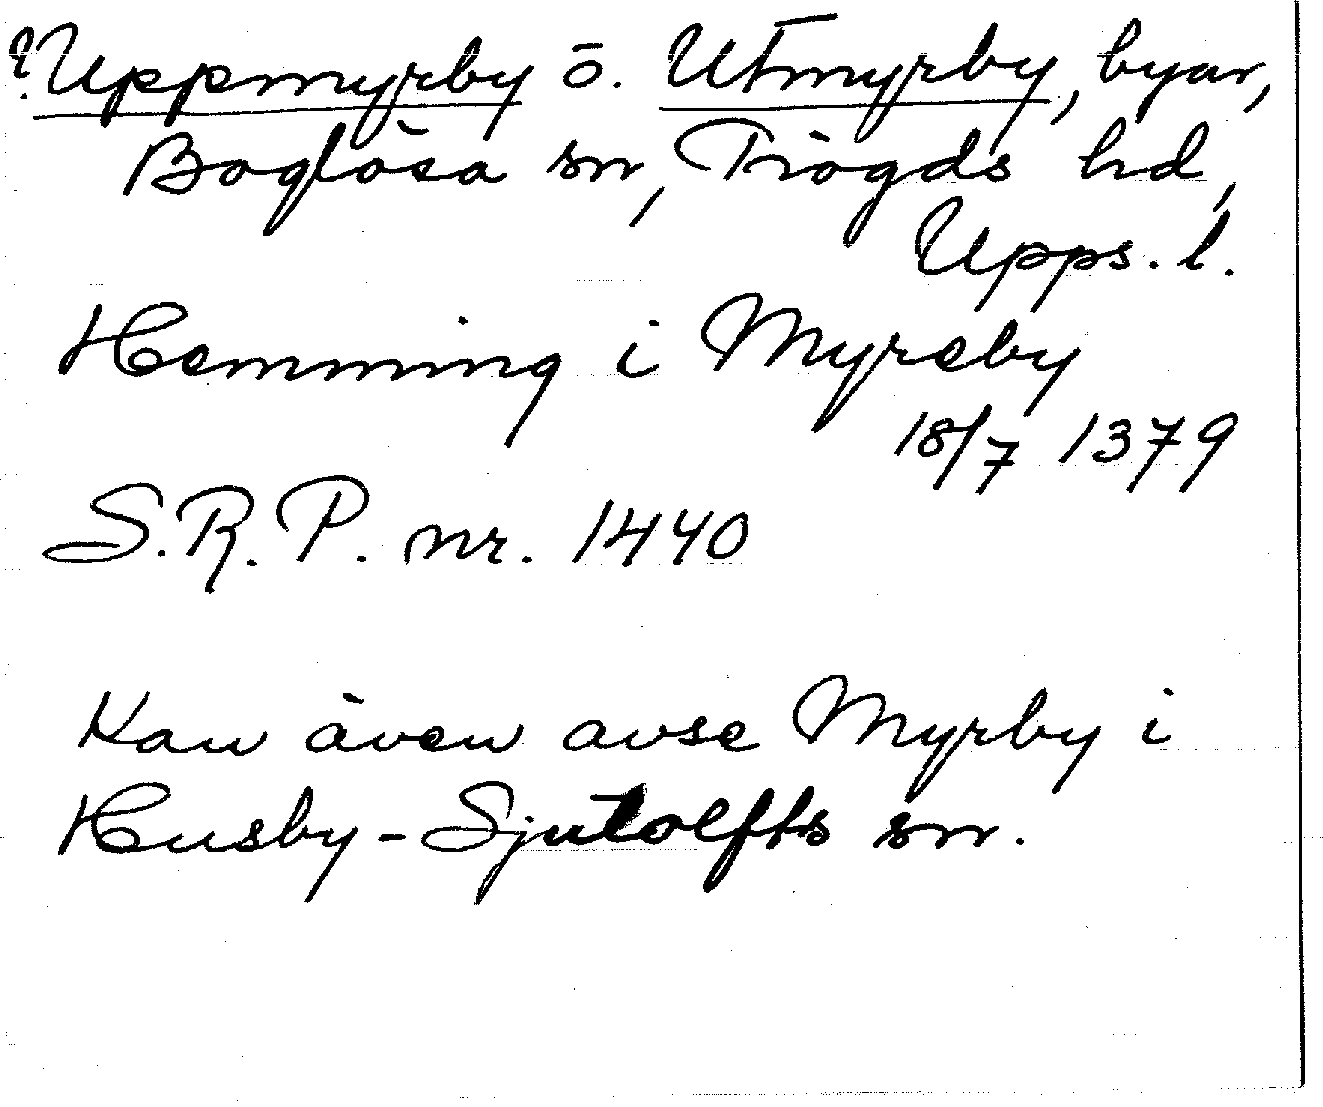 ?Uppmyrby o. Utmyrby, byar,
Boglösa sn, Trögds hd,
Upps. l.
Hemming i Myreby
18/7 1379
S.R.P. nr. 1440
Kan även avse Myrby i
Husby-Sjutolfts sn.